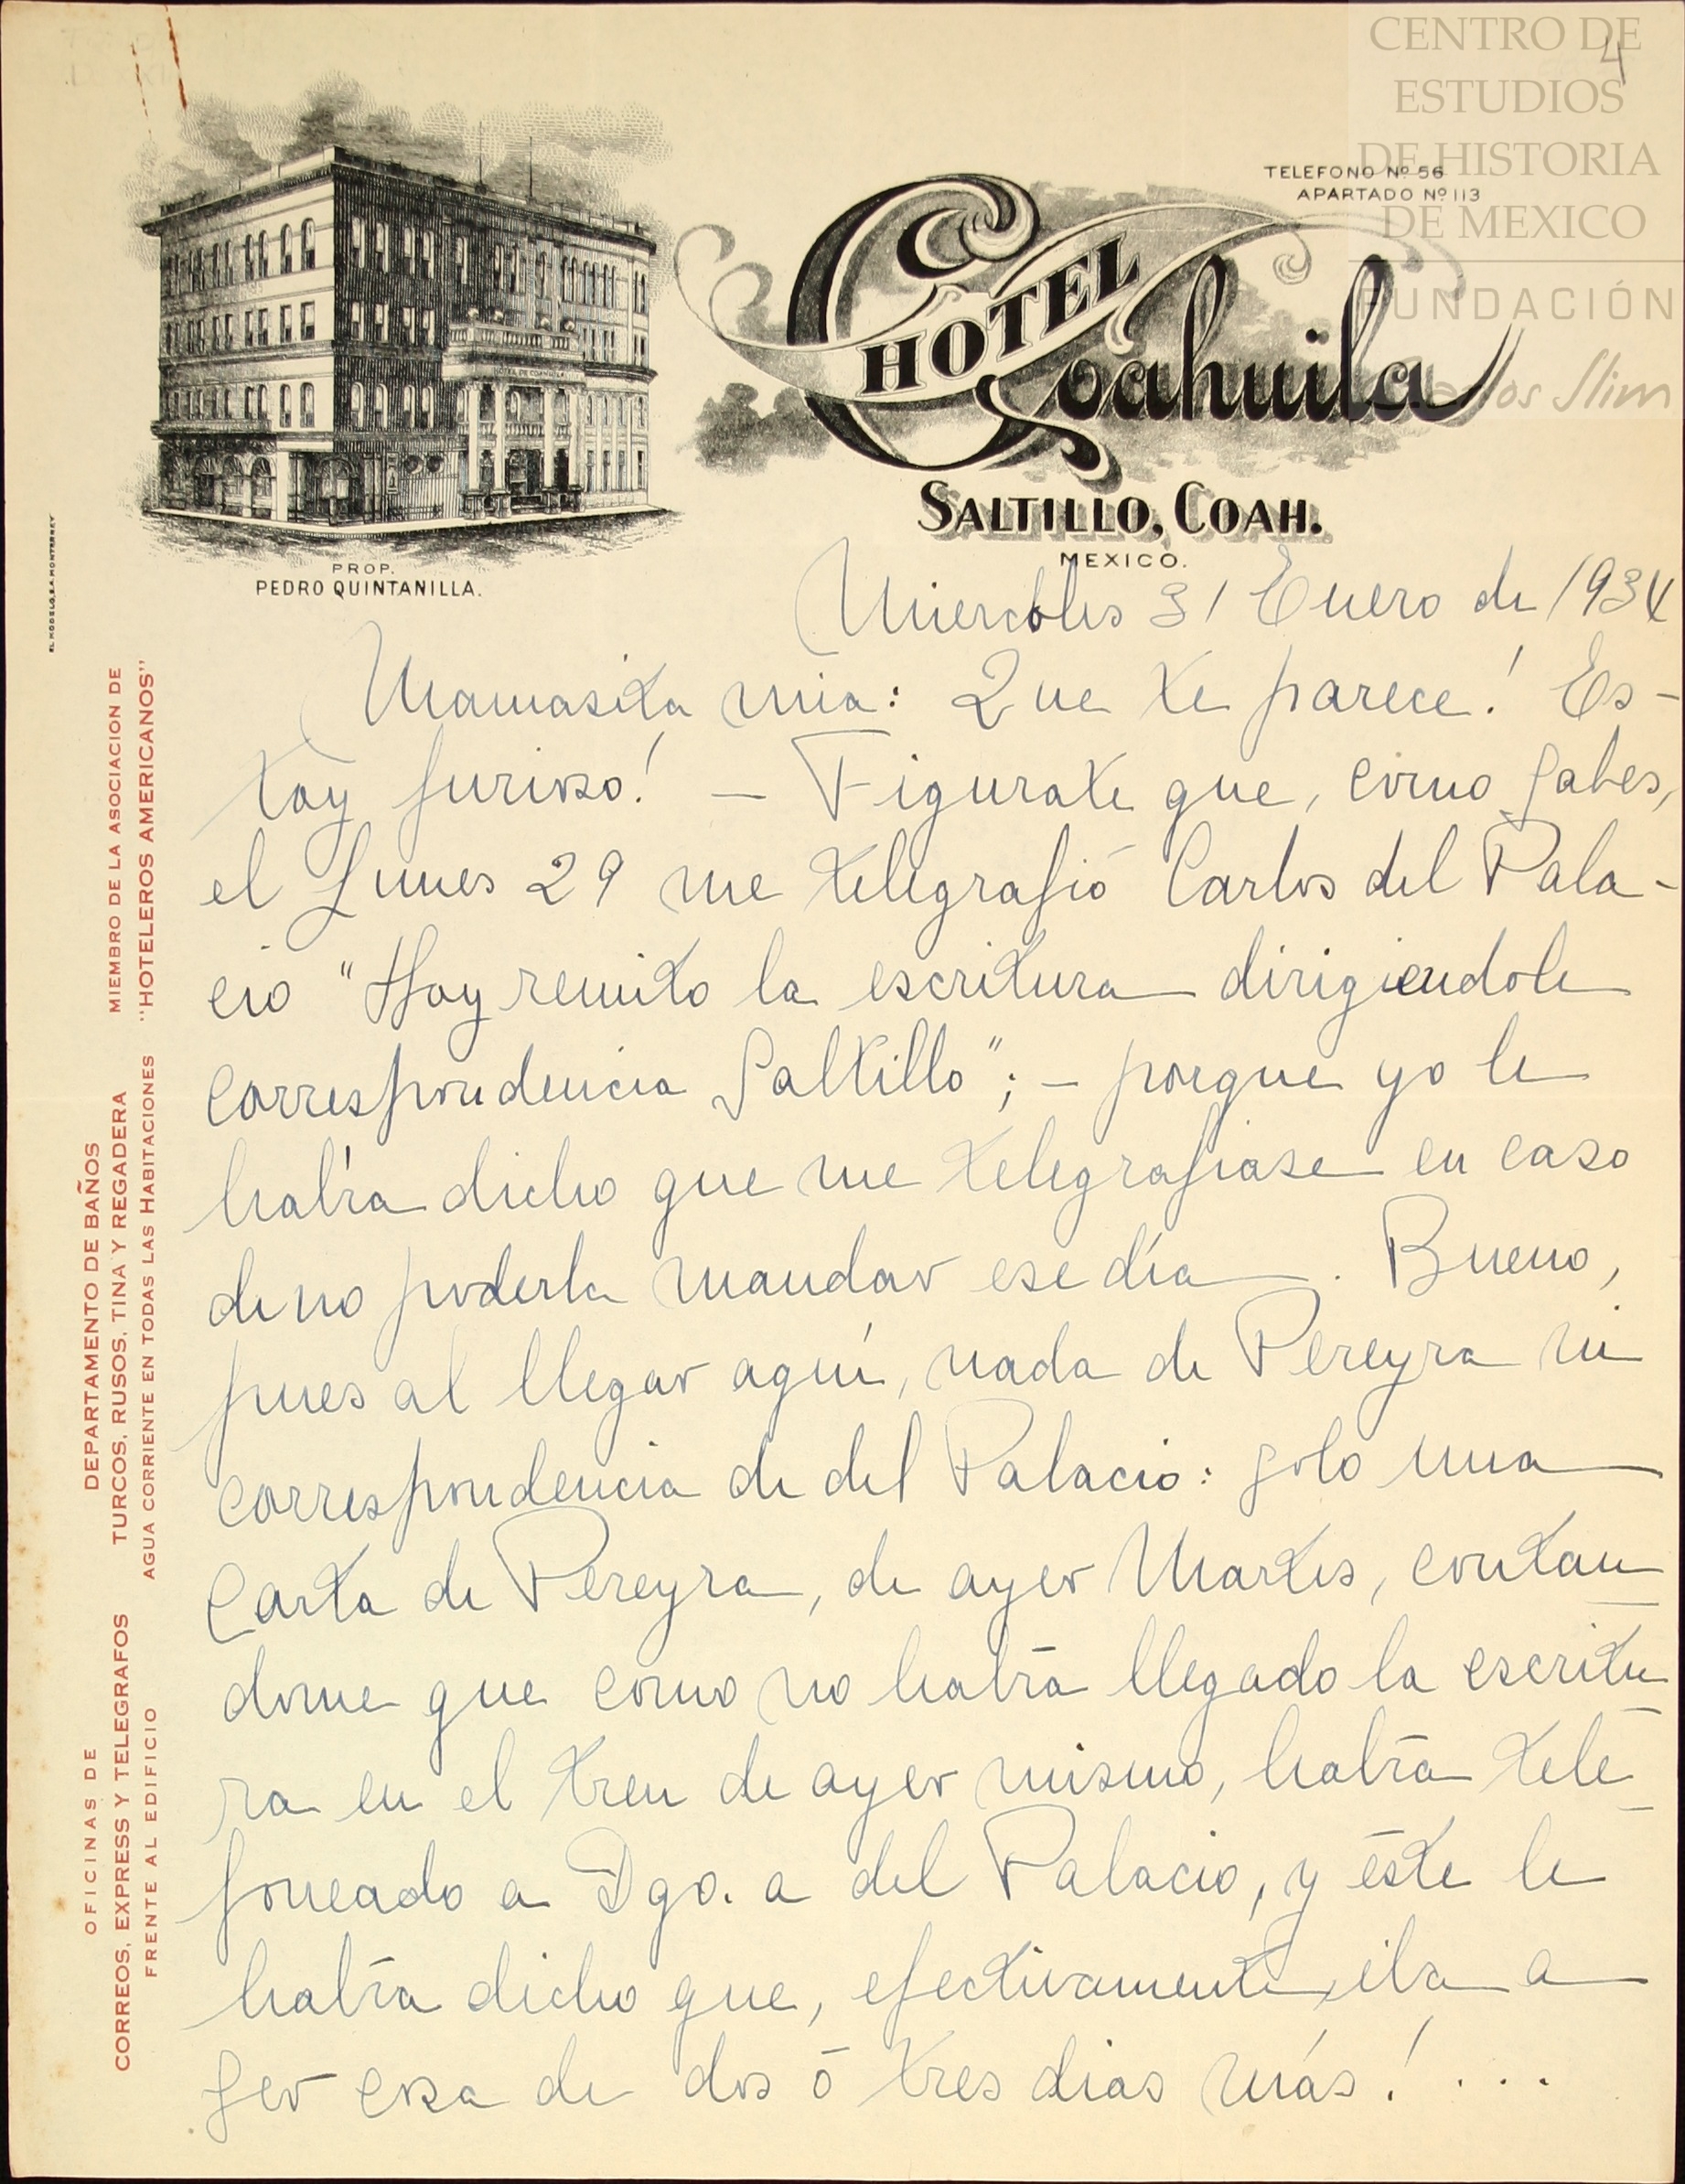 CENTRO DE
ESTUDIOS
DE HISTORIA
DE MEXICO
FUNDACIÓN
Carlos Slim
4
TELEFONO Nº 56
APARTADO Nº 113
HOTEL
Coahuila
SALTILLO, COAH.
MEXICO.
HOTEL DE COAHUILA
PROP.
PEDRO QUINTANILLA.
EL MODELO, S.A. MONTERREY
MIEMBRO DE LA ASOCIACION DE
"HOTELEROS AMERICANOS"
DEPARTAMENTO DE BAÑOS
TURCOS, RUSOS, TINA Y REGADERA
AGUA CORRIENTE EN TODAS LAS HABITACIONES
OFICINAS DE
CORREOS, EXPRESS Y TELEGRAFOS
FRENTE AL EDIFICIO
Miercoles 31 Enero de 1934
Mamasita mia: Que te parece! Es-
toy furioso! — Figurate que, como sabes,
el Lunes 29 me telegrafió Carlos del Pala-
cio "Hoy remito la escritura dirigiendole
correspondencia Saltillo"; — porque yo le
había dicho que me telegrafiase en caso
de no poderla mandar ese día. Bueno,
pues al llegar aquí, nada de Pereyra ni
correspondencia de del Palacio: solo una
carta de Pereyra, de ayer Martes, contan
dome que como no había llegado la escritu
ra en el tren de ayer mismo, había tele
foneado a Dgo. a del Palacio, y éste le
había dicho que, efectivamente, iba a
ser cosa de dos ó tres dias más! ...